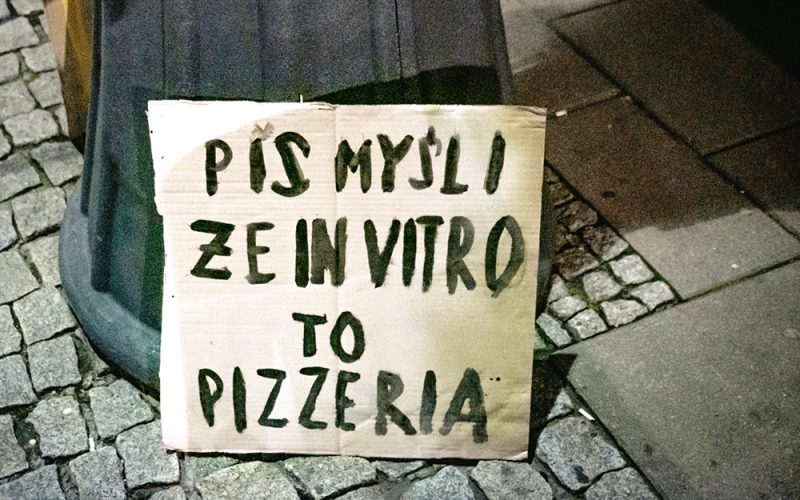 PIS MYŚLI
ŻE IN VITRO
TO
PIZZERIA